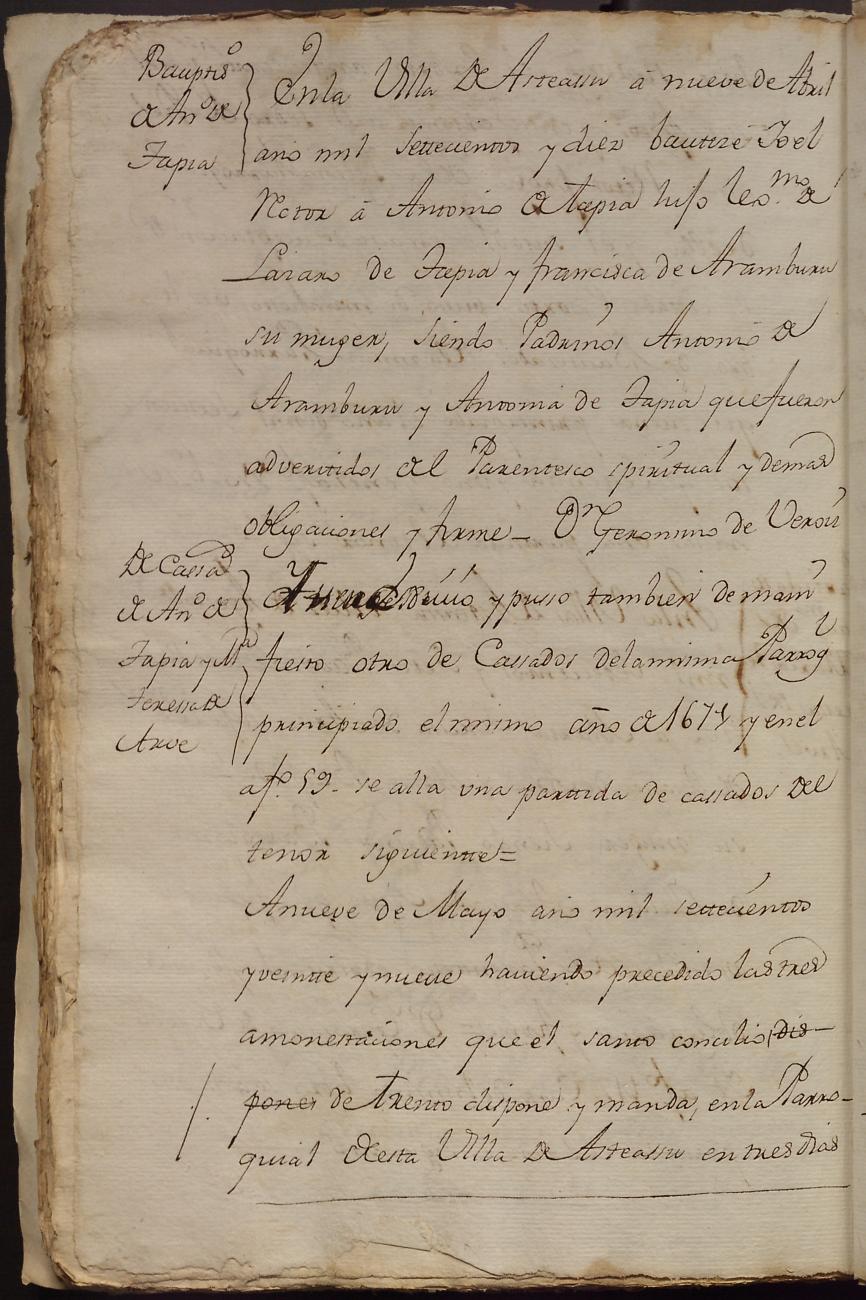 Bauptiº
de Anº de
Tapia
En la Villa de Asteassu â nueve de Abril
año mil settecientos y diez bautize Yo el
Rector â Antonio de Tapia hijo lexmo de
Lazaro de Tapia y francisca de Aramburu
su muger, siendo Padrinos Antonio de
Aramburu y Antonia de Tapia que fueron
adveritidos del Parentesco spiritual y demas
obligaciones y firme_ Dn Geronimo de
De Cassaº
de Anº de
Tapia y Mª
teressa de
Arve
y pusso tambien de mani
fiesto otro de Cassados de la misma Parroql
principiado el mismo año de 1674 y en el
afº. 59_ se alla una parttida de cassados del
tenor siguientte=
A nueve de Mayo año mil settecientos
y veintte y nueve haviendo precedido las tres
amonestaciones que el santo concilio, dis-
pones de Trento dispone y manda, en la Parro-
quial desta Villa de Asteassu en tres dias